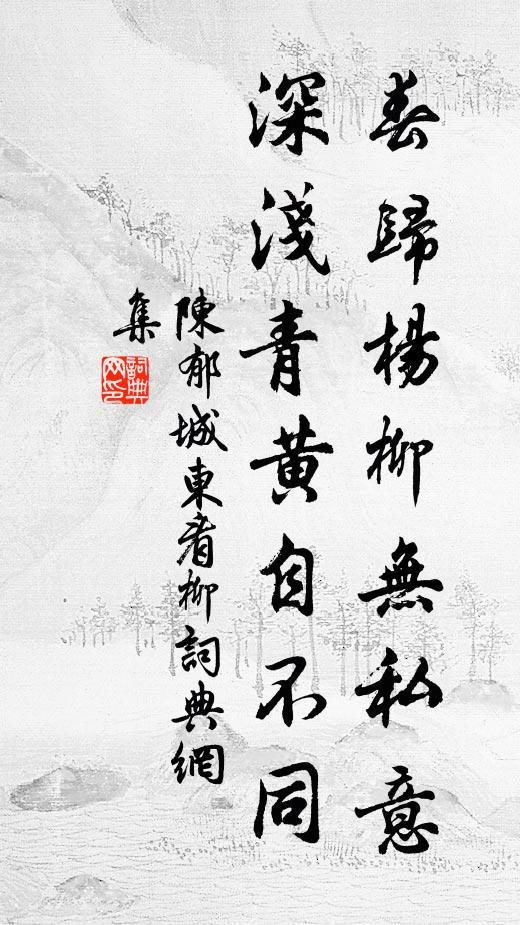 春歸楊柳無私意
深淺青黃自不同
陳郁城東看柳詞典網
集
詞典
网印